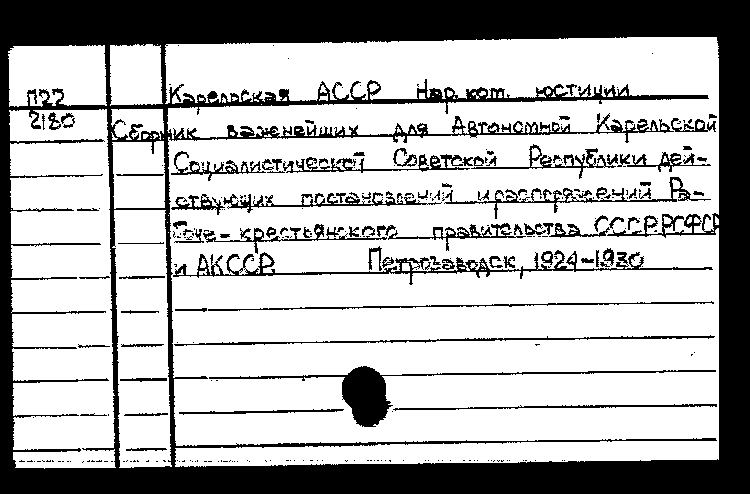 П22 Карельская АССР Нар. ком. юстиции
2180 Сборник важнейших для Автономной Карельской
Социалистической Советской Республики дей-
ствующих постановлений и распоряжений Ра-
боче-крестьянского правительства СССР РСФСР
и АКССР. Петрозаводск, 1924-1930